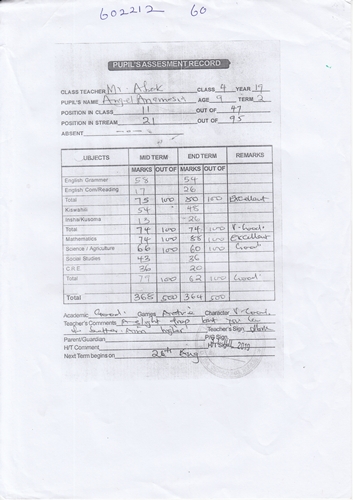 602212 60
PUPIL'S ASSESMENT RECORD
CLASS TEACHER Mr. CLASS 4 YEAR 17
PUPIL'S NAME Angel AGE 9 TERM 2
POSITION IN CLASS 11 OUT OF 47
POSITION IN STREAM 21 OUT OF 95
ABSENT
SUBJECTS MID TERM END TERM REMARKS
MARKS OUT OF MARKS OUT OF
English Grammer 58 54
English Com/Reading 17 26
Total 75 100 80 100 Excellent
Kiswahili 54 48
Insha/Kusoma 15 26
Total 74 100 74 100 V. Good
Mathematics 74 100 88 100 Excellent
Science / Agriculture 66 100 60 100 Good
Social Studies 43 36
C.R.E 36 20
Total 79 100 62 100 Good
Total 368 500 364 500
Academic Good. Games Character V. Good.
Teacher's Comments A slight drop but you can
do better. Aim higher Teacher's Sign
Parent/Guardian P/G Sign
H/T Comment H/T Sign
Next Term begins on 28th Aug